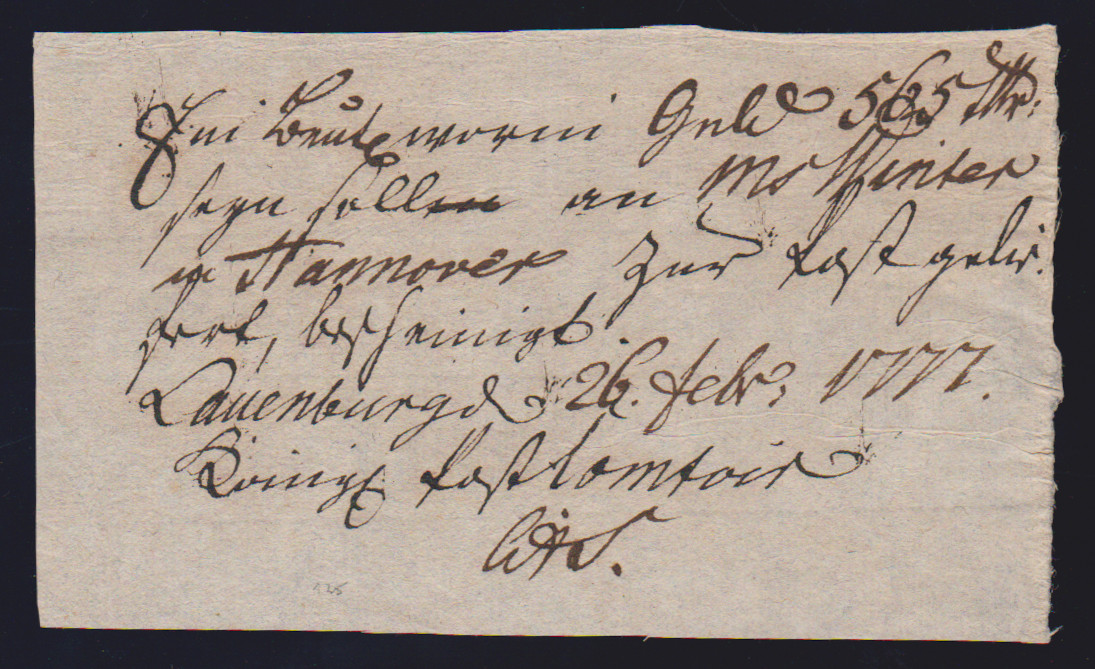 Ein Beutel worin Geld 565 Thlr:
seyn sollen an Mr Winter
in Hannover zur Post gelie-
fert, bescheinigt.
Lauenburg d 26. Febr: 1777.
Königl Post Comtoir